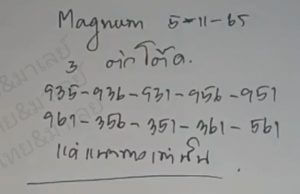 Magnum 5-11-65
3 ตัวโต๊ด
935-936-931-956-951
961-356-351-361-561
แค่แนวทางเท่านั้น